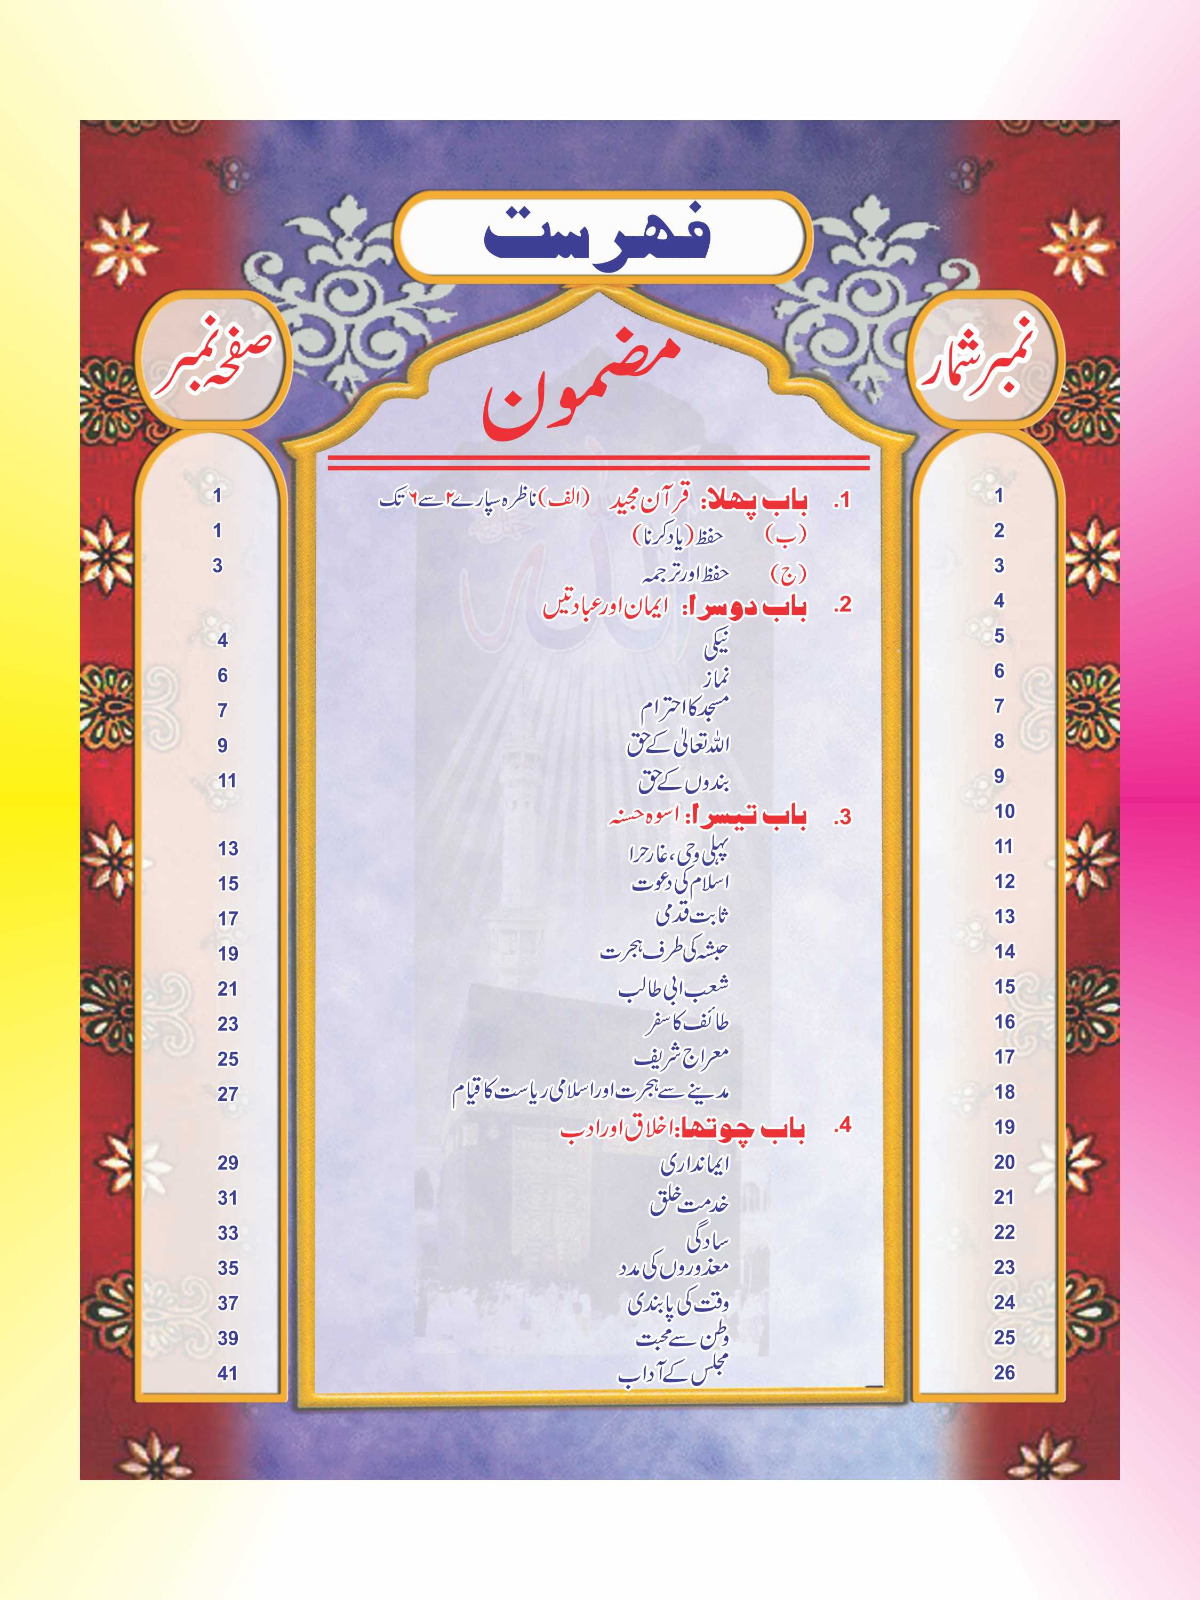 فهرست
نمبر شمار
مضمون
صفحہ نمبر
1 1. باب پهلا: قرآن مجید (الف) ناظرہ سپارے ۲ سے ۶ تک 1
2 (ب) حفظ (یاد کرنا) 1
3 (ج) حفظ اور ترجمہ 3
4 2. باب دوسرا: ایمان اور عبادتیں
5 نیکی 4
6 نماز 6
7 مسجد کا احترام 7
8 اللہ تعالیٰ کے حق 9
9 بندوں کے حق 11
10 3. باب تیسرا: اسوہ حسنہ
11 پہلی وحی، غار حرا 13
12 اسلام کی دعوت 15
13 ثابت قدمی 17
14 حبشہ کی طرف ہجرت 19
15 شعب ابی طالب 21
16 طائف کا سفر 23
17 معراج شریف 25
18 مدینے سے ہجرت اور اسلامی ریاست کا قیام 27
19 4. باب چوتها: اخلاق اور ادب
20 ایمانداری 29
21 خدمت خلق 31
22 سادگی 33
23 معذوروں کی مدد 35
24 وقت کی پابندی 37
25 وطن سے محبت 39
26 مجلس کے آداب 41